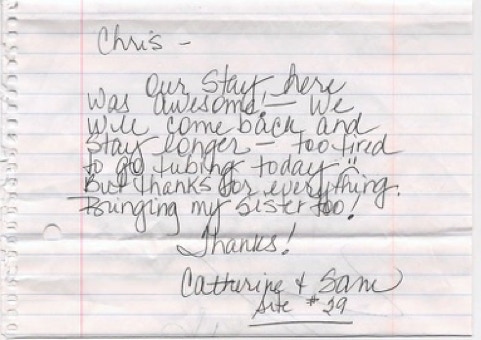 Chris -
Our Stay here
was awesome! - We
will come back and
Stay longer - too tired
to go tubing today ¨
But thanks for everything.
Bringing my sister too!
Thanks!
Catherine & Sam
Site #29